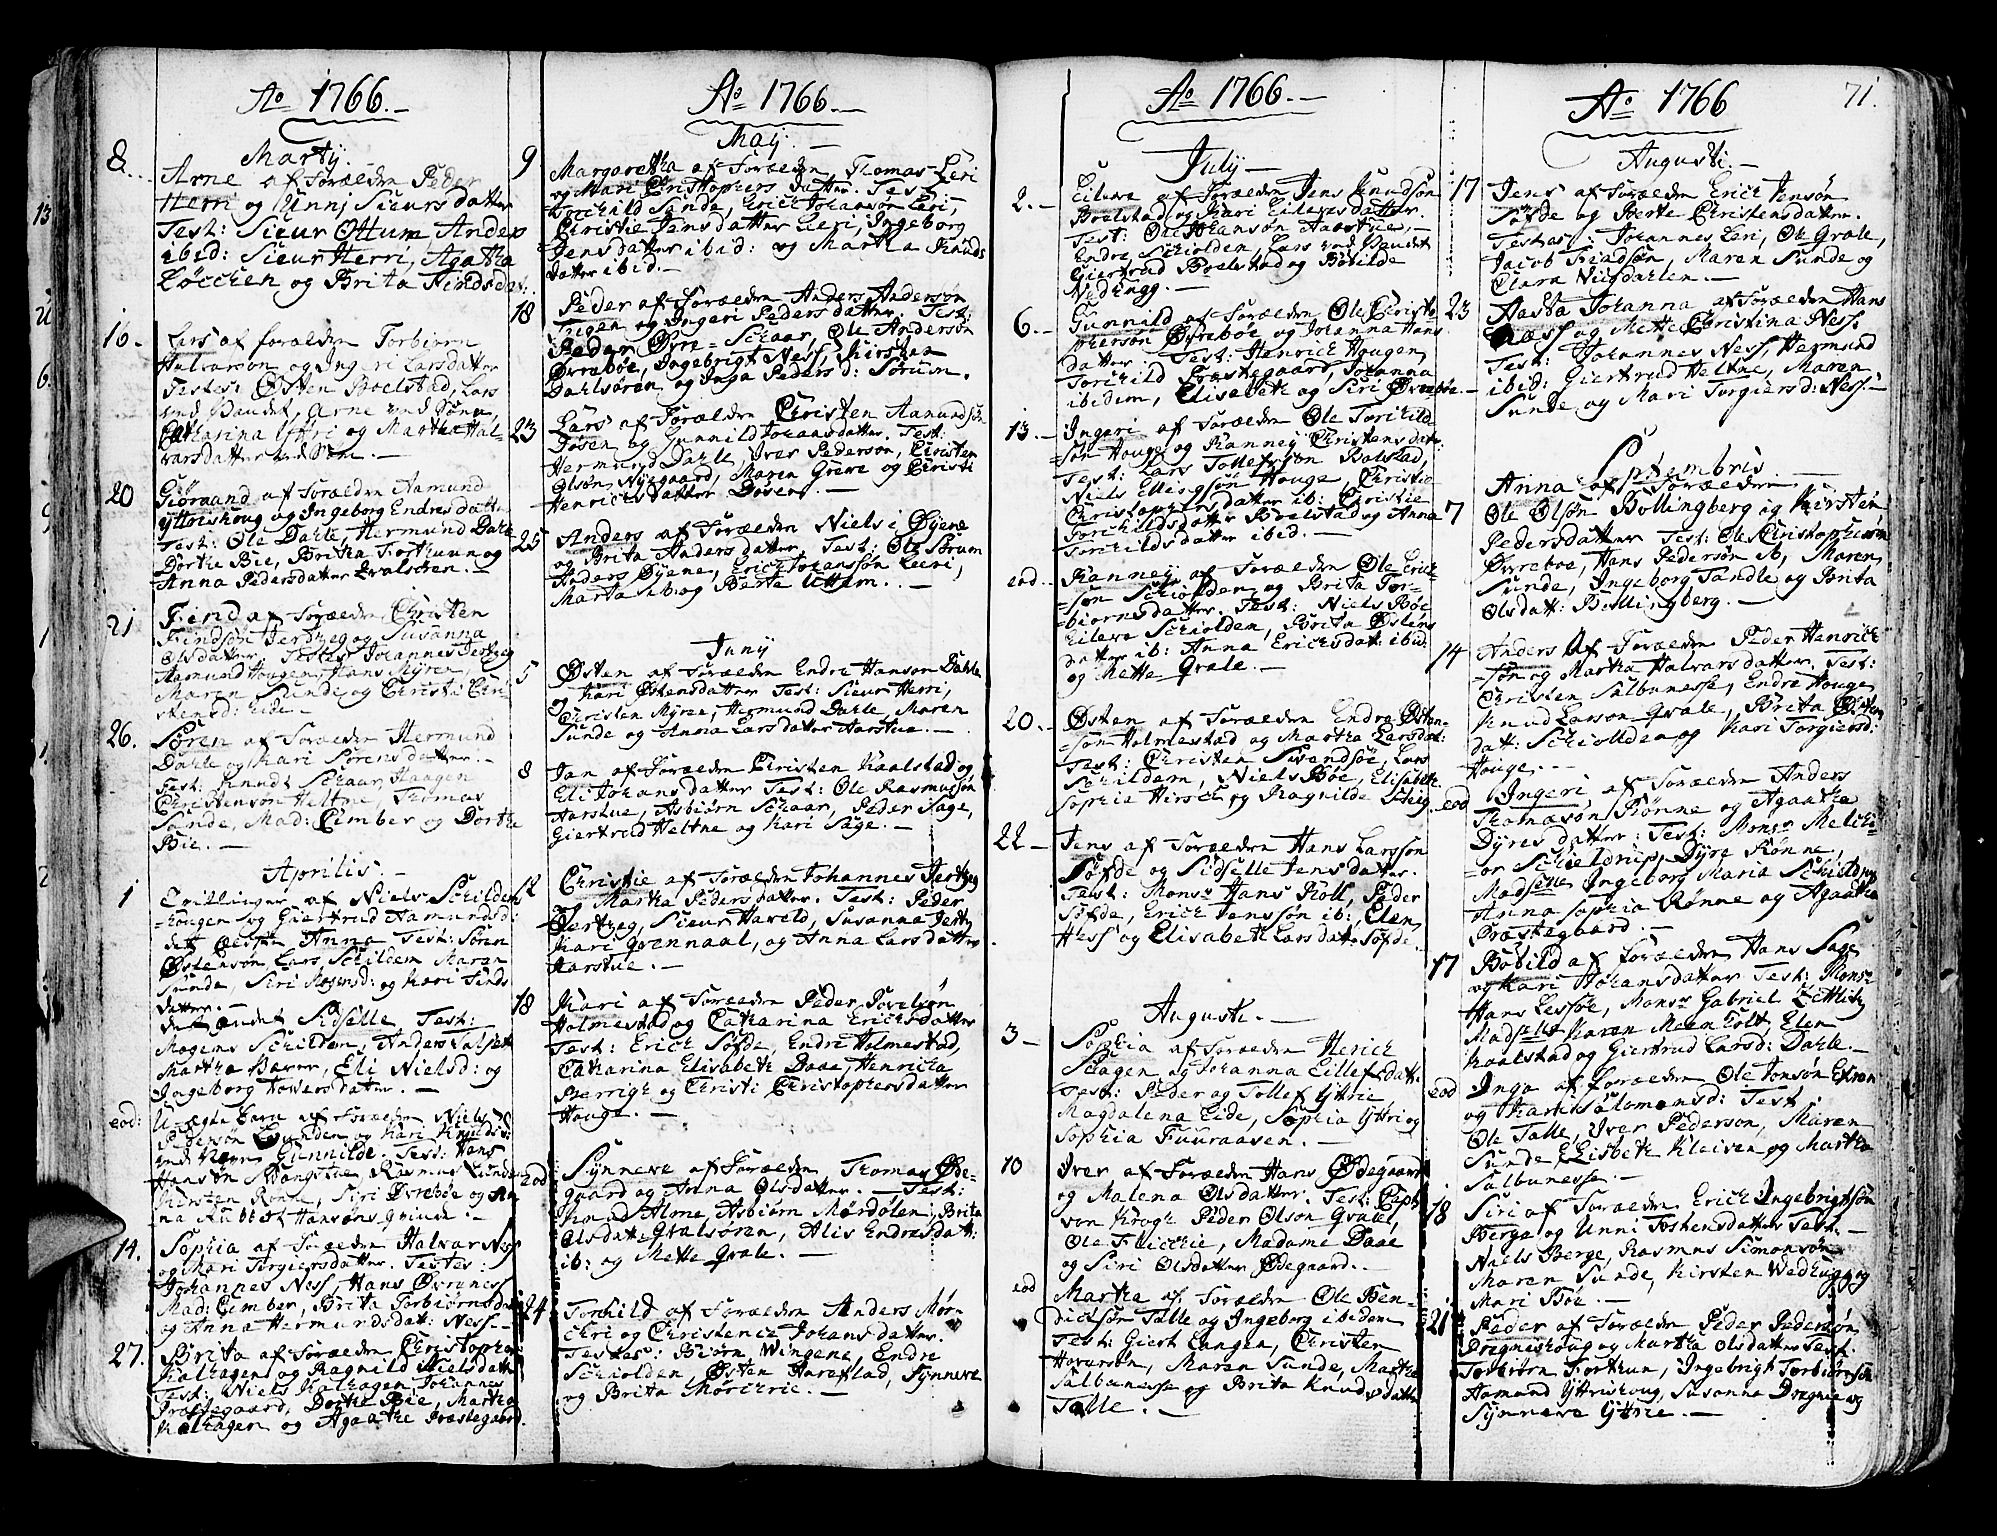 Ao 1766.
Martij.
8. Arne af Forældre Peder
Herri og Unni Siursdatter
Test: Siur Ottum Anders
ibid: Siur Herri, Agatha
Løcchen og Brita Findsdat:
16. Lars af foraldre Torbiørn
Halvarsøn og Ingeri Larsdatter
Testes Østen Boelstad, Lars
Catharina Yttri og Martha Hal-
varsdatter
20 Giørmund af Forældre Aamund
Yttrishoug og Ingeborg Endresdatter
Test: Ole Dahle, Hermund Dahle
Dortie Bie, Britha Forthuun og
Anna Pedersdatter Qvalschen.
21 Find af Forældre Christen
Findsøn Jertzeg og Susanna
Olsdatter Testes Johannes Jertzeg
Aamund Hougen, Hans Myren
Maren Sunde og Christi Chri-
stensd: Eide
26. Søren af Forældre Hermund
Dahle og Kari Sørensdatter.
Test: Knudt Schaar, Haagen
Christensøn Heltne, Thomas
Sunde, Mad: Cember og Dortha
Bie.
Aprilis.
1 Tvillinger af Niels Schildem
hougen og Giertrud Aamundsd:
det ældste Anna Test: Søren
Østensøn Lars Schildem Maren
Sunde, Siri Mogensd: og Kari Finds
datter.
det andet Sidselle, Test:
Mogens Schildem, Anders
Martha Eli Nielsd: og
Ingeborg Iversdatter.
eod: U-ægte barn af Forældre Niels
Pedersøn og Kari Knudsd:
ved Navn Gunnilde. Test: Hans
Hansøn Rasmus Sunde
Kirsten Rønne, Siri Øvrebøe og
14. Sophia af Forældre Halvar Ness
og Mari Torgiersd: Testes:
Johannes Ness, Hans Øvrness
Mad: Cember, Brita Torbiørnsd
og Anna Hermundsdat: Ness.
27. Brita af Forældre Christopher
Kalhagen og Ragnild Nielsdatter
Test: Niels Kalhagen Johannes
Præstegaard, Dorthe Bie, Martha
Kalhagen og Agaathe Præstegaard.
Ao 1766.
Maij.
9 Margaretha af Forældre Thomas Leri
og Mari Christophers datter. Test:
Torchild Sunde, Erich Johansøn Leri,
Christie Jensdatter Leri, Ingeborg
Jensdatter ibid: og Martha Knuds
datter ibid.
18 Peder af Forældre Anders Andersøn
og Ingeri Pedersdatter. Test:
Peder Øvre-Schaar, Ole Andersøn
Øvrebøe, Ingebrigt Ness, Kirsten
Dahlsøren og Inga Pedersd: Sørum.
23 Lars af Forældre Christen Aamundsøn
Døsen og Gunnild Johansdatter. Test:
Hermund Dahle, Iver Pedersøn, Christen
Olsøn Nyegaard, Maren Greve og Christi
Henrichsdatter Døsen.
25 Anders af Forældre Niels i Øyene
og Brita Andersdatter, Test: Ole Sørum
Anders Øyene, Erich Johansøn Leeri,
Marta ib: og Berte Uttem.
Junij
5 Østen af Forældre Endre Hansøn Dahle
og Kari Østensdatter Test: Siur Herri,
Christen Myren, Hermund Dahle, Maren
Sunde og Anna Larsdatter Aarstue.
8 Jan af Forældre Christen Kaalstad og
Eli Johansdatter Test: Ole Rasmusøn
Aarstue, Asbiørn Schaar, Peder Sage,
Giertrud Heltne og Kari Sage.
12 Christie af Forældre Johannes Jertzeg
og Martha Pedersdatter. Test: Peder
Jertzeg, Siur Haveld, Susanna Jertzeg
Kari Grennaal, og Anna Larsdatter
Aarstue.
18 Kari af Forældre Peder Povelsøn
Holmestad og Catharina Ericksdatter
Test: Erich Søfde, Endre Holmestad,
Catharina Elisabeth Daae, Henrich
og Christi Christophersdatter
Houge.
eod Synneve af Forældre Thomas Øde-
gaard og Anna Olsdatter. Test:
Knud Alme, Asbiørn Mørdølen, Brita
Olsdat: Qvalsøren, Alis Endresdatt:
ib: og Mette Qvale.
24 Torchild af Forældre Anders Mør-
chri og Christence Johansdatter.
Testes: Biørn Wingene, Endre
Schiolden Østen Harestad, Synneve
og Brita Mørchrie.
Ao 1766.
July
2. Eileve af Forældre Jens Knudsøn
Boelstad og Kari Eilevsdatter
Test: Ole Johansøn Aarstue,
Endre Schiolden, Lars
Giertrud Boelstad og Bøthilde
Nedhugg.
6. Gunnild af Forældre Ole Christo-
phersøn Øvreboe og Johanna Hans
datter Test: Henrich Hougen,
Torchild Præstegaard, Johanna
ibidem, Elisabeth og Siri Øvrebøe
13. Ingeri af Forældre Ole Torchild-
søn Houge og Ranney Christensdat:
Test: Lars Tollefsøn Bolstad
Niels Ellingsøn Houge, Christie
Christophersdatter ib: Christie
Torchildsdatter Boelstad og Anna
Torchildsdatter ibid.
eod. Ranney af Forældre Ole Erich-
søn Schiolden og Brita Tor-
biornsdatter. Test: Niels Bøe
Eileve Schiolden, Brita Østens
datter ib: Anna Erichsdat: ibid:
og Mette Qvale.
20. Østen af Forældre Endre Østen-
søn Holmestad og Martha Larsdat:
Test: Christen Svendsøe, Lars
Schildem, Niels Bøe, Elisabeth
Sophie Hirsch og Ragnilde Steig.
22 Jens af Forældre Hans Larssøn
Søfde og Sidselle Jensdatter.
Test: Monsr Hans Holl, Peder
Søfde, Erich Jenssøn ib: Elen
Hess og Elisabeth Larsdat: Søfde.
Augusti.
3 Sophia af Forældre Henrich
Schagen og Johanna Eillefsdatt:
Test: Peder og Tollef Yttrie
Magdalena Eide, Sophia Yttri og
Sophia Fuuraasen.
10 Iver af Forældre Hans Ødegaard
og Malena Olsdatter. Test: Cap:
von Krogh Peder Olson Qvale,
Ole Flicchie, Madame Daae
og Siri Olsdatter Ødegaard.
eod Martha af Forældre Ole Ben-
dictsøn Talle og Ingeborg ibidem
Test: Giert Langen, Christen
Havarsøn, Maren Sunde, Martha
Salbunesse og Brita Knudsdatter
Talle.
Ao 1766
71.
Augusti.
17 Jens af Forældre Erich Jensøn
Søfde og Berte Christensdatter.
Testes: Johannes Leri, Ole Qvale,
Jacob Findsøn, Maren Sunde og
Clara Niigdahlen.
23 Aasta Johanna af Forældre Hans
Næss og Mette Christina Ness.
Test: Johannes Ness, Hermund
ibid: Giertrud Heltne, Maren
Sunde og Mari Torgiersd: Ness.
Septembris
7 Anna af Forældre
Ole Olsøn Bollingberg og Kirsten
Pedersdatter Test: Ole Christophersøn
Øvrebøe, Hans Pedersøn ib, Maren
Sunde, Ingeborg Tandle og Brita
Olsdatt: Bollingberg.
14 Anders af Forældre Peder Henrich
søn og Martha Halvarsdatter. Test:
Christen Salbunesse, Endre Houge
Knud Larson Qvale, Brita Østens
dat: Schiolden og Kari Torgiersd:
Houge.
eod Ingeri, af Forældre Anders
Thomæsøn Rønne og Agaathe
Dyresdatter: Test: Monsr Melchi-
or Schieldrup, Dyre Rønne,
Madselle Ingeborg Maria Schieldrup
Anna Sophia Rønne og Agaatha
Præstegaard.
17 Bøthild af Forældre Hans Sage
og Kari Johansdatter Test: Monsr
Hans Lessøe, Monsr Gabriel Zetlitz
Madselle Karen Meen Holt, Elen
Kaalstad og Giertrud Larsd: Dahle.
eod Inga af Forældre Ole Jonsøn
og Kari Salomonsd: Test:
Ole Talle, Iver Pederson, Maren
Sunde, Elisbeth Kleiven og Martha
Salbunesse.
18 Siri af Forældre Erich Ingebrigtsøn
Berge og Unni Tostensdatter Test:
Niels Berge, Rasmus Simonsøn
Maren Sunde, Kirsten Wedhugg og
Mari Bøe.
21 Peder af Forældre Peder Pedersøn
Dregneshoug og Martha Olsdatter Test.
Torbiørn Forthun, Ingebrigt Torbiørnsøn
Aamund Yttrishoug, Susanna Dregnie og
Synneve Yttre.